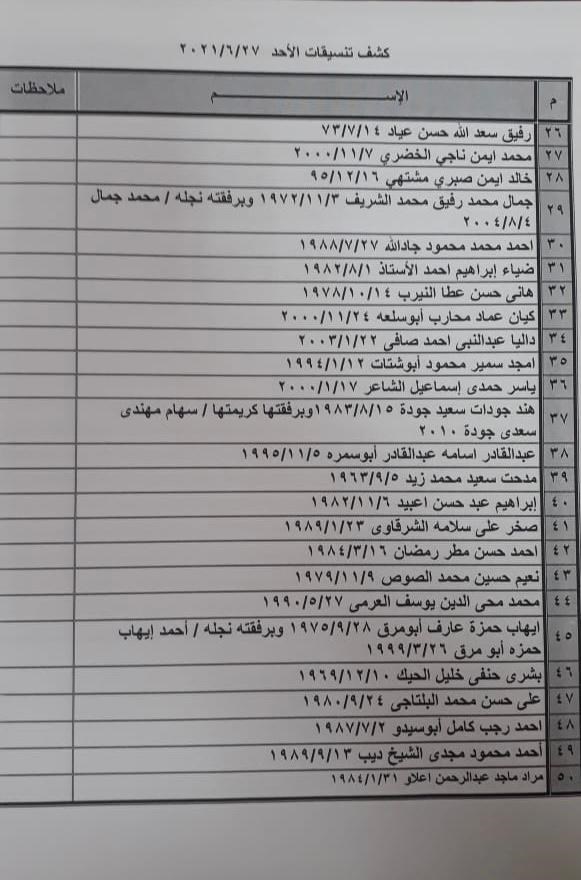 كشف تنسيقات الأحد ٢٠٢١/٦/٢٧
م الإســـــم ملاحظات
٢٦ رفيق سعد الله حسن عياد ٧٣/٧/١٤
٢٧ محمد ايمن ناجي الخضري ٢٠٠٠/١١/٧
٢٨ خالد ايمن صبري مشتهي ٩٥/١٢/١٦
٢٩ جمال محمد رفيق محمد الشريف ١٩٧٢/١١/٣ وبرفقته نجله / محمد جمال
٢٠٠٤/٨/٤
٣٠ احمد محمد محمود جادالله ١٩٨٨/٧/٢٧
٣١ ضياء إبراهيم احمد الأستاذ ١٩٨٢/٨/١
٣٢ هانى حسن عطا النيرب ١٩٧٨/١٠/١٤
٣٣ كيان عماد محارب أبوسلعه ٢٠٠٠/١١/٢٤
٣٤ داليا عبدالنبى احمد صافى ٢٠٠٣/١/٢٢
٣٥ امجد سمير محمود أبوشتات ١٩٩٤/١/١٢
٣٦ ياسر حمدى إسماعيل الشاعر ٢٠٠٠/١/١٧
٣٧ هند جودات سعيد جودة ١٩٨٣/٨/١٥وبرفقتها كريمتها / سهام مهندى
سعدى جودة ٢٠١٠
٣٨ عبدالقادر اسامه عبدالقادر أبوسمره ١٩٩٥/١١/٥
٣٩ مدحت سعيد محمد زيد ١٩٦٣/٩/٥
٤٠ إبراهيم عبد حسن اعبيد ١٩٨٢/١١/٦
٤١ صخر على سلامه الشرقاوى ١٩٨٩/١/٢٣
٤٢ احمد حسن مطر رمضان ١٩٨٤/٣/١٦
٤٣ نعيم حسين محمد الصوص ١٩٧٩/١١/٩
٤٤ محمد محى الدين يوسف العرمى ١٩٩٠/٥/٢٧
٤٥ ايهاب حمزة عارف أبومرق ١٩٧٥/٩/٢٨ وبرفقته نجله / أحمد إيهاب
حمزه أبو مرق ١٩٩٩/٣/٢٦
٤٦ بشرى حنفى خليل الحيك ١٩٦٩/١٢/١٠
٤٧ على حسن محمد البلتاجى ١٩٨٠/٩/٢٤
٤٨ احمد رجب كامل أبوسيدو ١٩٨٧/٧/٢
٤٩ أحمد محمود مجدى الشيخ ديب ١٩٨٩/٩/١٣
٥٠ مراد ماجد عبدالرحمن اعلاو ١٩٨٤/١/٣١